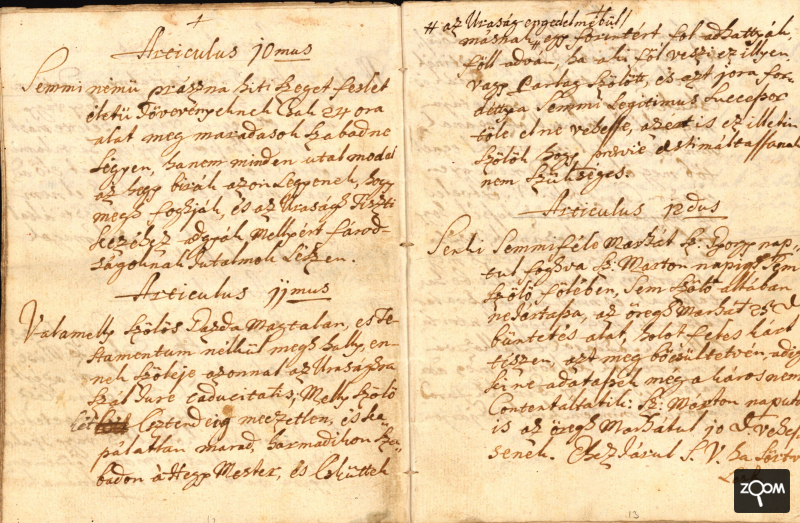 Articulus 10mus
Semmi némü präszna hiti szeget feslet
életü Jövevényeknek csak 24 ora
alat meg maradasok szabad ne
légyen, hanem minden utal modal
az hegy birák azon légyenek, hogy
megh foghják, és az Uraságh Tiszti
kezéhez adgyák, Mellyért fárod-
ságoknak Jutalmok lészen.
Articulus 11mus
Valamelly szölös Gazda Magtalan, es Te-
stamentum nélkül megh haly, en-
nek szöleje azonnal az Uraságra
szál Jure caducitatis, Melly szölö
két esztendeig meczetlen, és ka-
pálatlan marad, harmadikon sza-
badon à Hegy Mester, és Esküttek
# az Uraság engedelmébül
másnak egy forintért fol adhattyák,
föll adván, ha aki föl veszi ez illyen
vagy Parlag szölöt, és azt jora for-
dittya Semmi Legitimus Successor
töle el ne vehesse, azért is ez illetin
szölök hogy praevie aestimáltassanak
nem szükséges.
Articulus 12dus
Senki Semmiféle Marhát Sz: György nap-
tul foghva Sz: Marton napigh Sem
szölö fölében, Sem szölö allában
ne tartassa, az öregh Marhát 25 d
büntetés alat, holot fetes kárt
tészen, azt meg böcsültetvén, adig
ki ne adatassék még a káros nem
Contentáltatik: Sz: Márton naputan
is az öregh Marhátul 10 d vehes-
senek. S. V. ha Sörtve